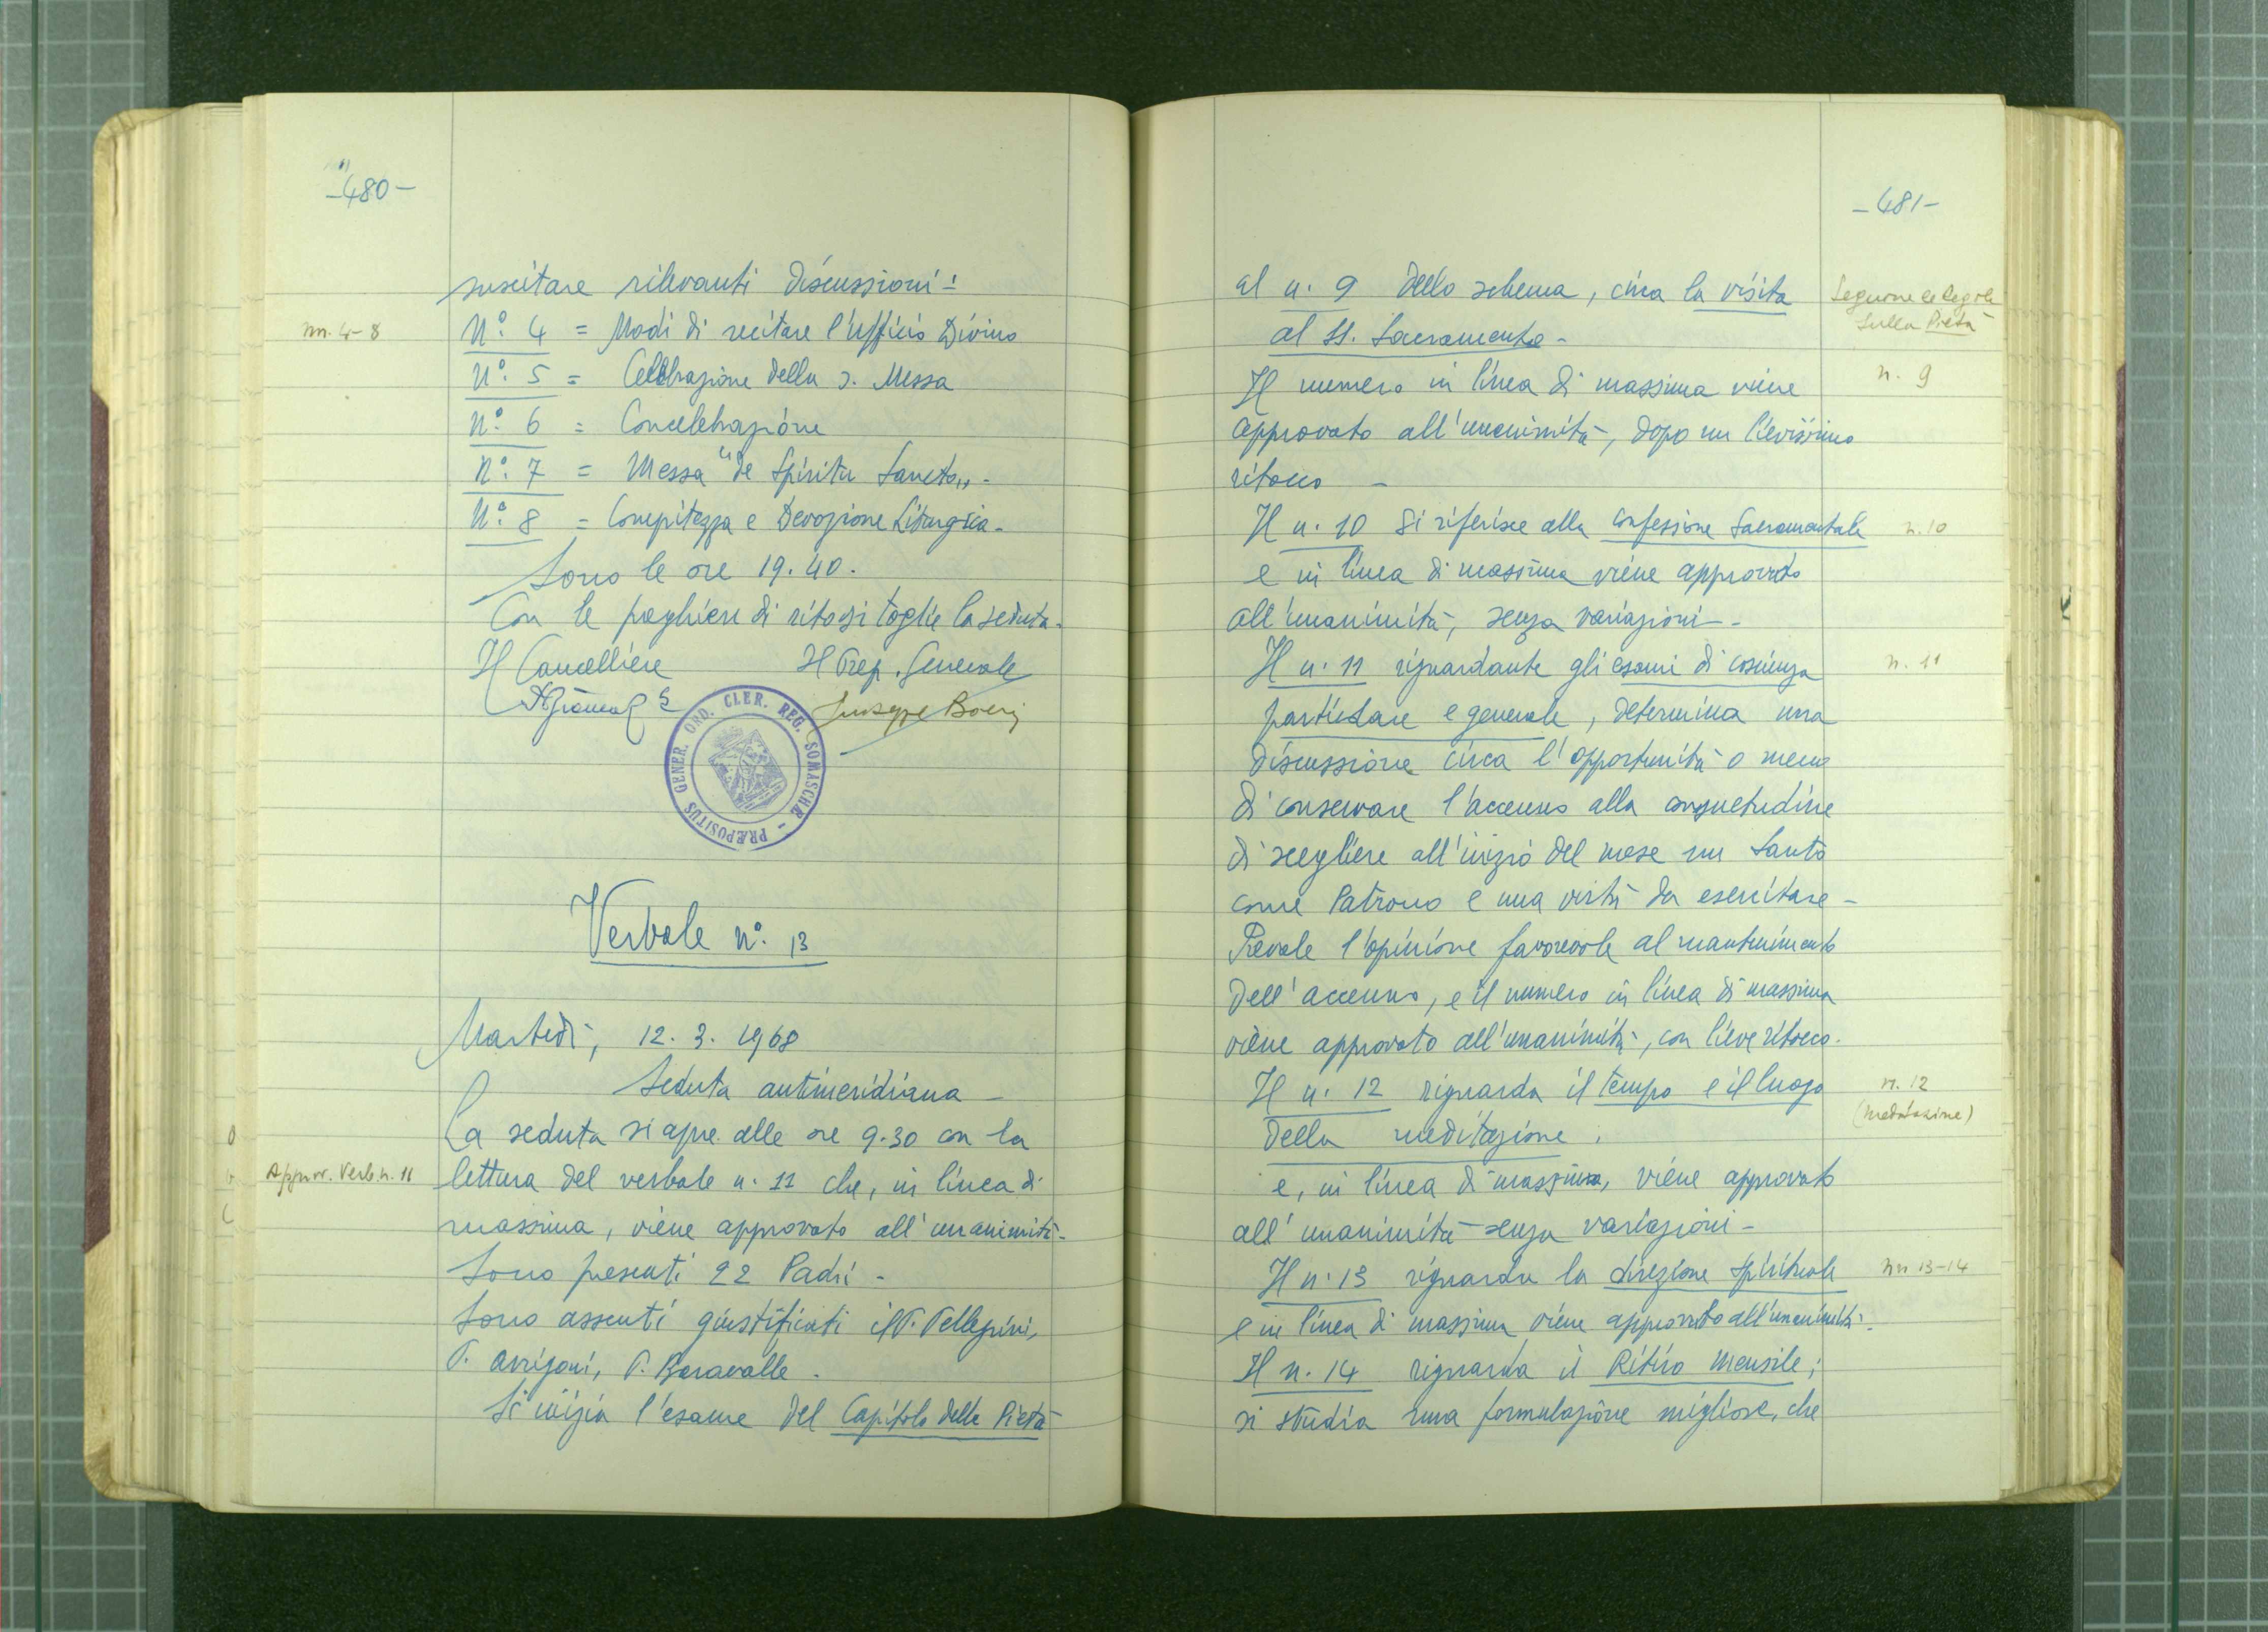 -480-
suscitare rilevanti discussioni:
nn. 4-8
N° 4 = Modi di recitare l'ufficio Divino
N° 5 = Celebrazione della s. Messa
N° 6 = Concelebrazione
N° 7 = Messa "de Spiritu Sancto„ -
N° 8 = Compitezza e Devozione Liturgica -
Sono le ore 19.40.
Con le preghiere di rito si toglie la seduta -
Il Cancelliere Il Prep. Generale
Giuseppe Boeri
PRÆPOSITUS GENER. ORD. CLER. REG. SOMASCHÆ -
Verbale n° 13
Martedì, 12. 3. 1968
Seduta antimeridiana -
La seduta si apre alle ore 9.30 con la
Approv. Verb. n. 11
lettura del verbale n. 11 che, in linea di
massima, viene approvato all'unanimità -
Sono presenti 22 Padri -
Sono assenti giustificati il P. Pellegrini,
P. Arrigoni, P. Baravalle -
Si inizia l'esame del Capitolo della Pietà
-481-
al n. 9 dello schema, circa la visita
al SS. Sacramento -
Seguono le Regole
sulla Pietà
n. 9
Il numero in linea di massima viene
approvato all'unanimità, dopo un lievissimo
ritocco -
Il n. 10 si riferisce alla confessione Sacramentale
n. 10
e in linea di massima viene approvato
all'unanimità, senza variazioni -
Il n. 11 riguardante gli esami di coscienza
n. 11
particolare e generale, determina una
discussione circa l'opportunità o meno
di conservare l'accenno alla consuetudine
di scegliere all'inizio del mese un Santo
come Patrono e una virtù da esercitare -
Prevale l'opinione favorevole al mantenimento
dell'accenno, e il numero in linea di massima
viene approvato all'unanimità, con lieve ritocco.
Il n. 12 riguarda il tempo e il luogo
n. 12
(meditazione)
della meditazione.
e, in linea di massima, viene approvato
all'unanimità senza variazioni -
Il n. 13 riguarda la direzione spirituale
nn 13-14
e in linea di massima viene approvato all'unanimità.
Il n. 14 riguarda il Ritiro mensile;
si studia una formulazione migliore, che